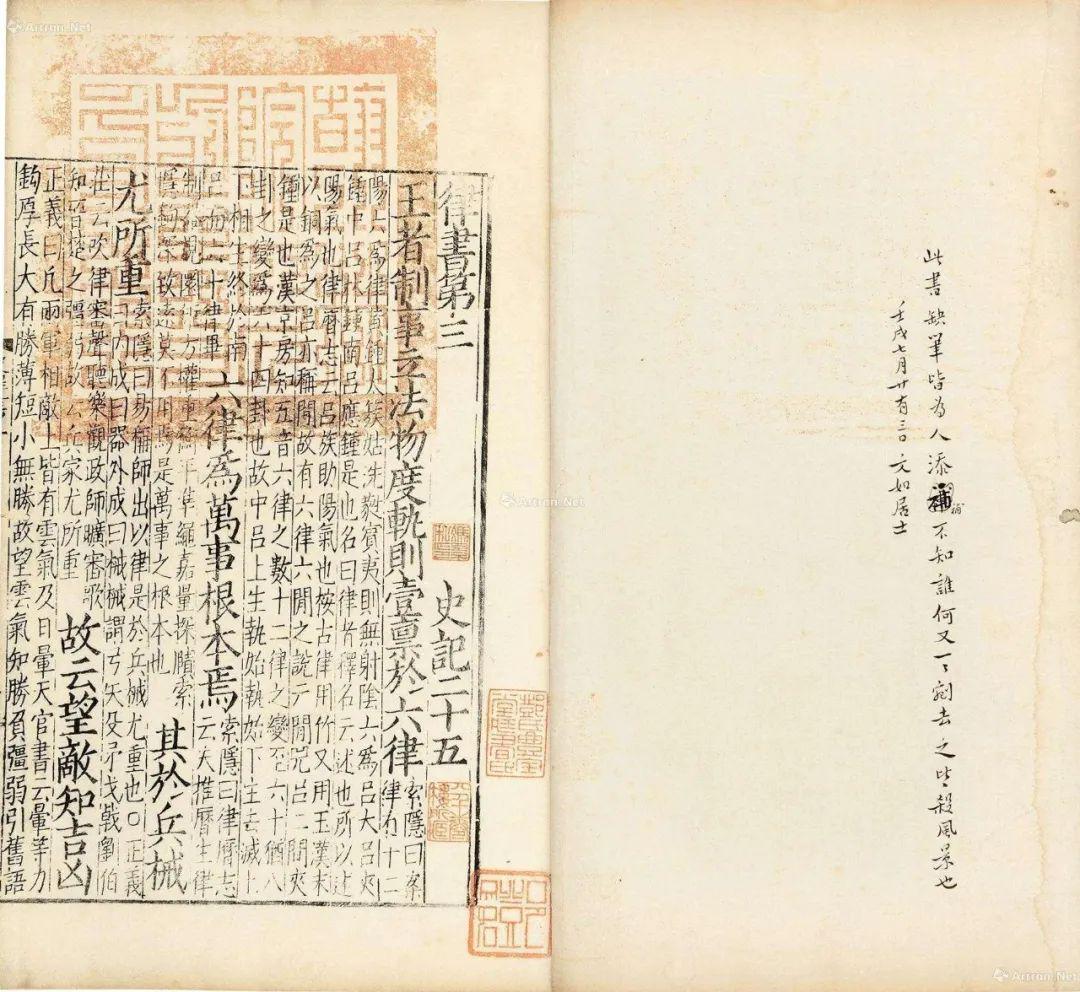 此書缺筆皆為人添補不知誰何又一一剜去之皆殺風景也
壬戌七月廿有三日文如居士
律書第三 史記二十五
王者制事立法物度軌則壹稟於六律
索隱曰案
律有十二
陽六爲律黄鍾太蔟姑洗蕤賓夷則無射陰六爲吕大吕夾
鍾中吕林鍾南吕應鍾是也名曰律者釋名云述也所以述
陽氣也律曆志云吕族助陽氣也桉古律用竹又用玉漢末
以銅爲之吕亦稱閒故有六律六閒之說元閒吕二閒夾
鍾是也漢京房知五音六律之數十二律之變至六十猶八
卦之變爲六十四卦也故中吕上生執始執始下生去滅上
下相生終於南
吕而六十律畢
六律爲萬事根本焉
索隱曰律曆志
云夫推曆生律
制器規圜矩方權重衡平準繩嘉量探賾索
隱鉤深致遠莫不用焉是萬事之根本也
其於兵械
尤所重
索隱曰易稱師出以律是於兵械尤重也○正義
曰内成曰器外成曰械械謂弓矢殳矛戈戟劉伯
莊云吹律審聲聽樂觀政師曠審歌
知晉楚之彊弱故云兵家尤所重
故云望敵知吉凶
正義曰凡兩軍相敵上皆有雲氣及日暈天官書云暈等力
鈞厚長大有勝薄短小無勝故望雲氣知勝負彊弱引舊語
Artron.Net
Artron.Net
Artron.Net